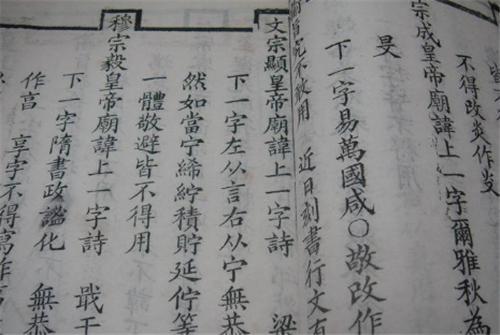 不得改炎作
宗成皇帝廟諱上一字爾雅秋為
旻
下一字易萬國咸〇故改作
不敢用 近日刻書行文有
文宗顯皇帝廟諱上一字詩 梁
下一字左从言右从宁無恭
然如當宁締紵積貯延佇等
一體敬避皆不得用
穆宗毅皇帝廟諱上一字詩 戩干
下一字隋書政謐化 無恭
作亯 享字不得寫作